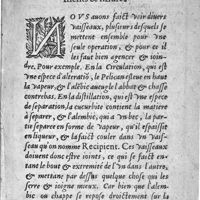 NOVS auons faict voir diuers
vaisseaux, plusieurs desquels se
mettent ensemble pour vne
seule operation, & pour ce il
les faut bien agencer & ioin-
dre. Pour exemple. En la Circulation, qui est
vne espece d'alteratiõ, le Pelican esleue en haut
la vapeur, & l'alébic aueugle l'abbat & chassé
contrebas. En la distillation, qui est vne espe-
ce de separation, la cucurbite contient la ma-
tiere, & l'alembic, qui a vn bec, la par-
tie separee en forme de vapeur, qui s'espaissit
en liqueur, & la faict couler dans vn vais-
seau qu'on nomme Recipient. Ces vaisseaux
doiuent donc estre ioints, ce qui se faict en met-
tant le bout & extremité de l'vn dans l'autre,
& mettant par dessus quelque chos qui les
serre & ioigne mieux. Car bien que l'alem-
bic ou chappe se repose droictement sur la